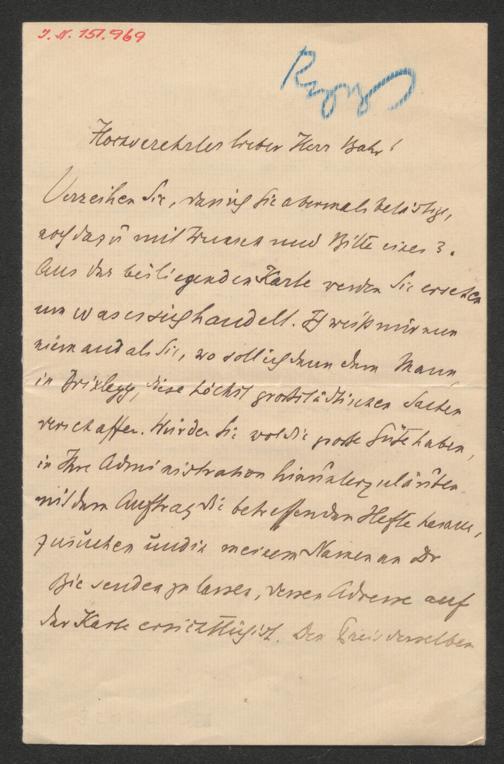 J.N. 151.969
Hochverehrter lieber Herr Bahr!
Verzeihen Sie, dass ich Sie abermals belästige,
noch dazu mit Wunsch und Bitte eines 3.
Aus der beiliegenden Karte werden Sie ersehen
um was es sich handelt. Ich weiß mir nun
niemand als Sie, wo soll ich denn dem Mann
in Brixlegg, diese höchst großstädtischen Sachen
verschaffen. Würden Sie wol die große Güte haben,
in Ihre Administration hinunterzuläuten
mit dem Auftrag die betreffenden Hefte heraus,
zusuchen und in meinem Namen an Dr
senden zu lassen, dessen Adresse auf
der Karte ersichtlich ist. Den Preis derselben